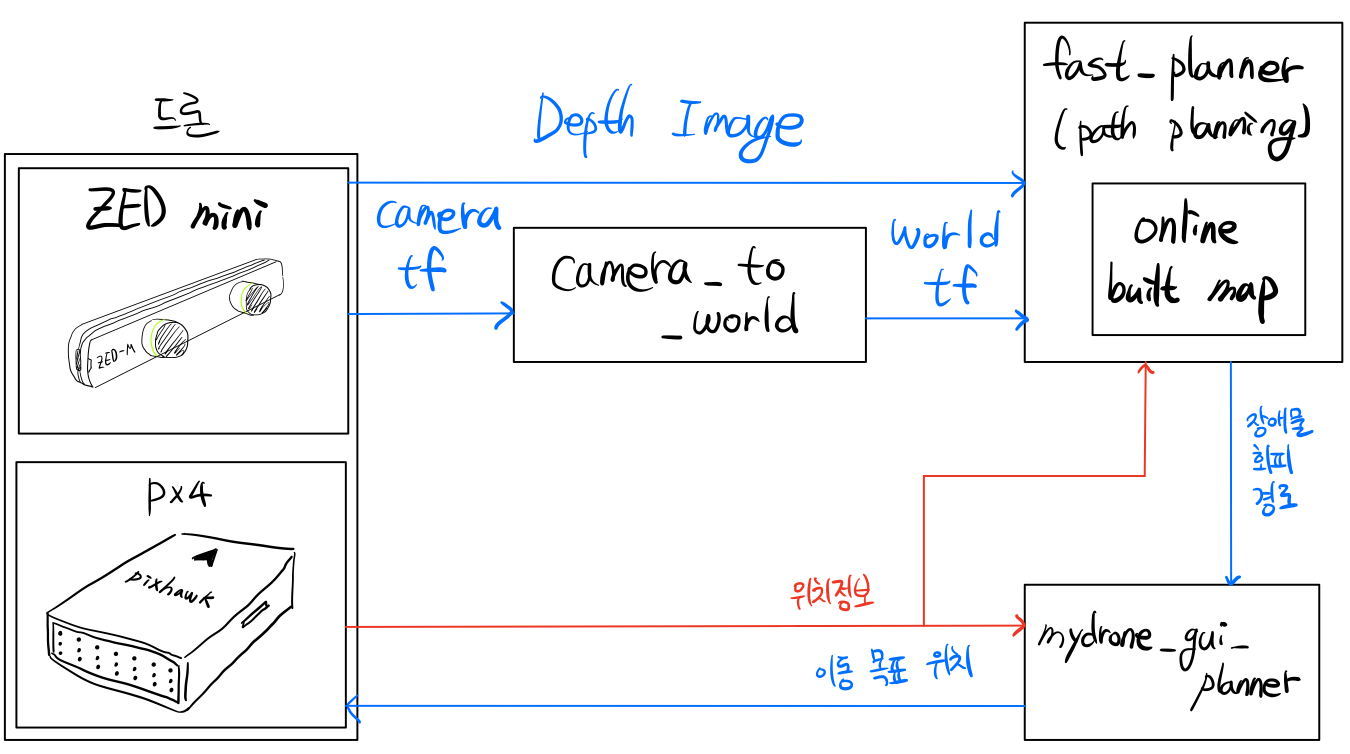 드론
ZED mini
ZED-M
Depth Image
camera
tf
camera_to
_world
world
tf
fast_planner
(path planning)
online
built map
장애물
회피
경로
px4
pixhawk
위치정보
이동 목표 위치
mydrone_gui_
planner